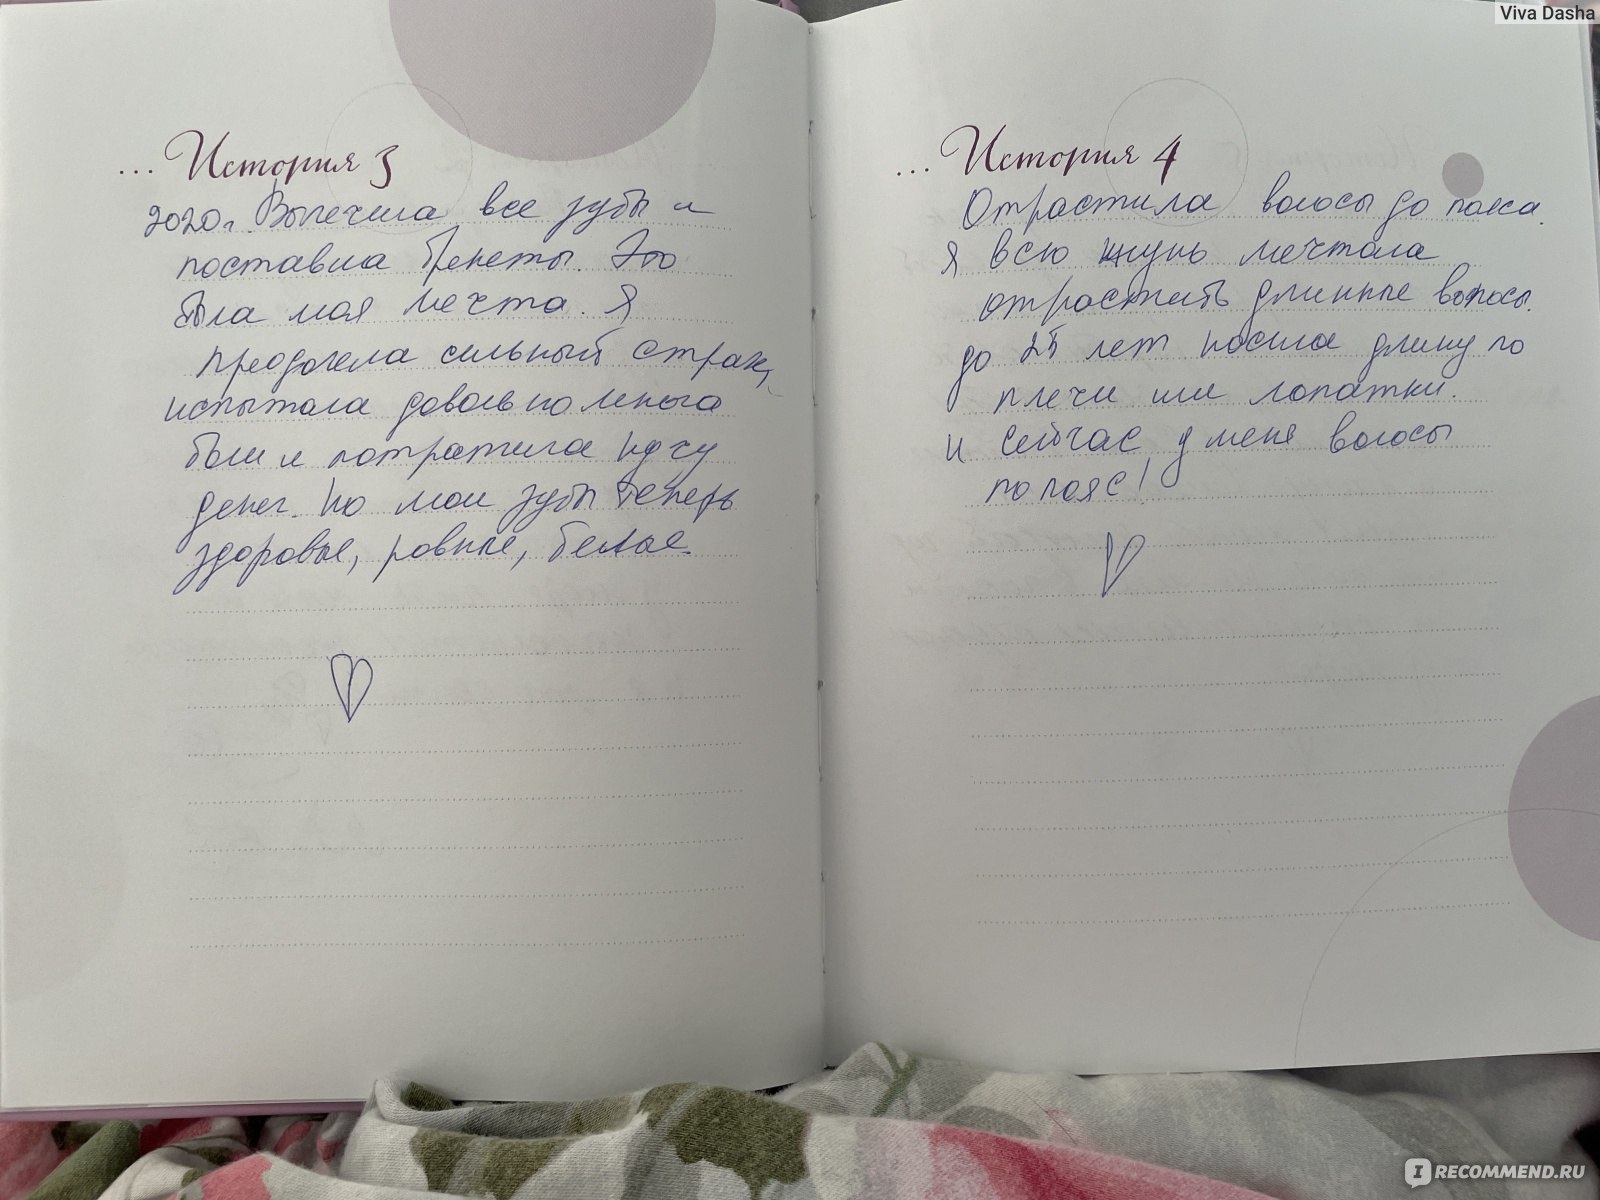 Viva Dasha
... История 3
2020г. Вылечила все зубы и
поставила брекеты. Это
была моя мечта. Я
преодолела сильный страх,
испытала довольно много
боли и потратила кучу
денег. Но мои зубы теперь
здоровые, ровные, белые.
... История 4
Отрастила волосы до пояса.
Я всю жизнь мечтала
отрастить длинные волосы.
до 25 лет носила длину по
плечи или лопатки.
и сейчас у меня волосы
по пояс!
IRECOMMEND.RU